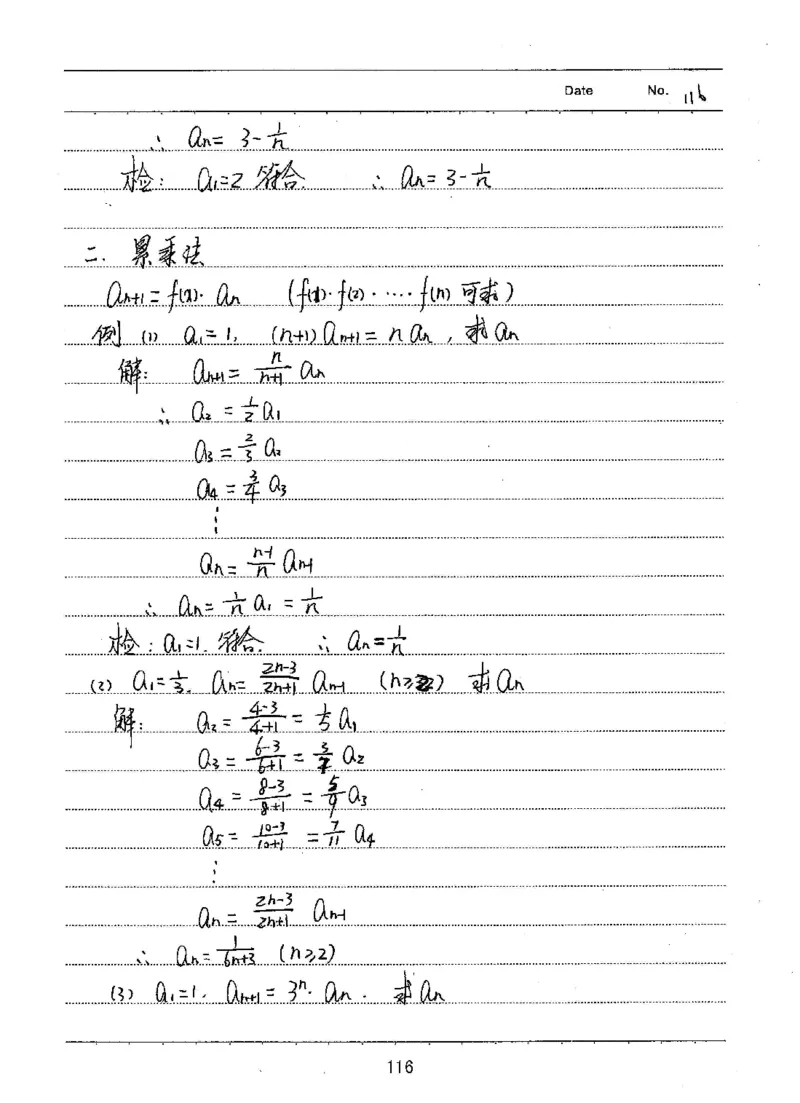 Date No. 116
∴ an = 3 - 1/n
检: a1=2 符合. ∴ an = 3 - 1/n
二. 累乘法
an+1 = f(n)· an (f(1)·f(2)·····f(n) 可求)
例 (1) a1=1, (n+1)an+1 = n an, 求an
解: an+1 = n/(n+1) an
∴ a2 = 1/2 a1
a3 = 2/3 a2
a4 = 3/4 a3
⋮
an = (n-1)/n an-1
∴ an = 1/n a1 = 1/n
检: a1=1. 符合. ∴ an = 1/n
(2) a1 = 1/3. an = (2n-3)/(2n+1) an-1 (n≥2) 求an
解: a2 = (4-3)/(4+1) = 1/5 a1
a3 = (6-3)/(6+1) = 3/7 a2
a4 = (8-3)/(8+1) = 5/9 a3
a5 = (10-3)/(10+1) = 7/11 a4
⋮
an = (2n-3)/(2n+1) an-1
∴ an = 1/(6n+3) (n≥2)
(3) a1=1. an+1 = 3^n· an. 求an
116